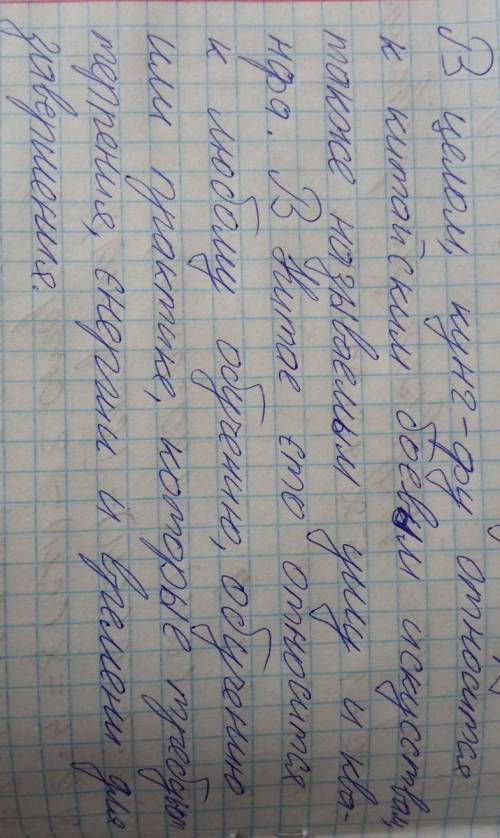 В целом, кунг-фу относится
к китайским боевым искусствам,
также называемым ушу и ква-
нфа. В Китае ето относится
к любому обучению, обучению
или практике, которые требуют
терпения, енергии и времени для
завершения.